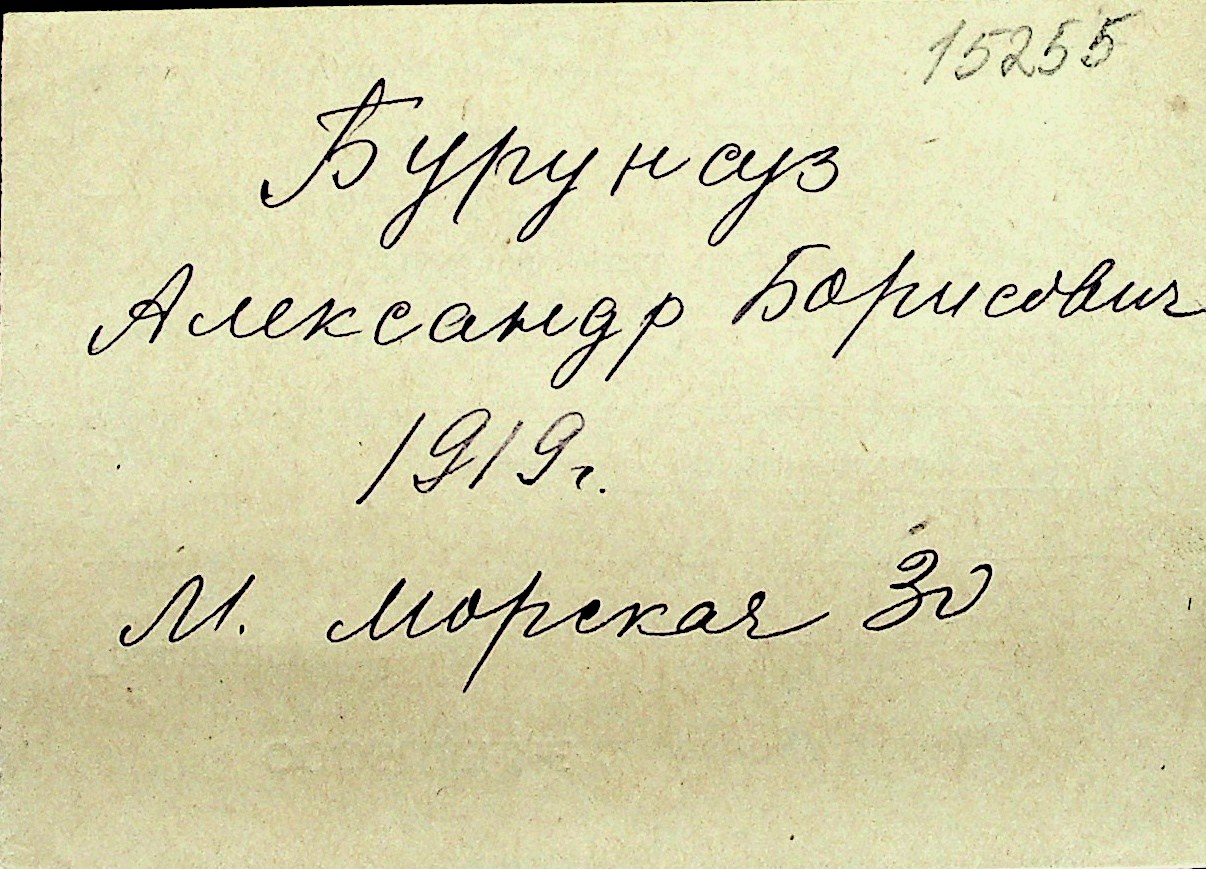 15255
Бурунсуз
Александр Борисович
1919г.
М. Морская 30